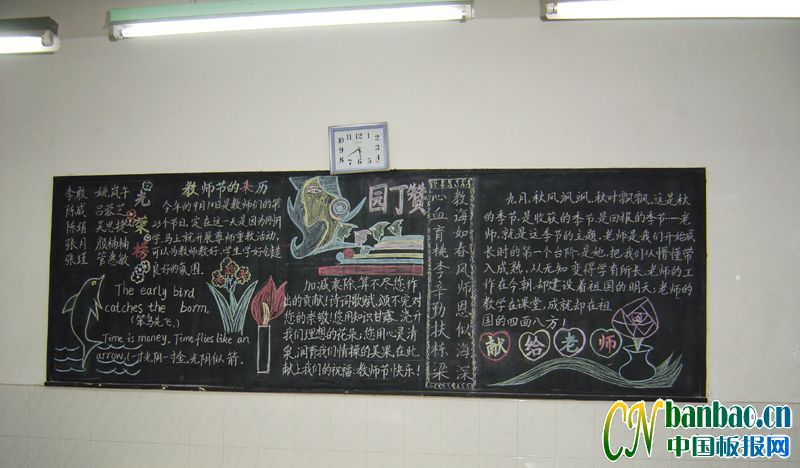 李敢 姚岚午
陈成 吕蓉芝
陈娟 吴思捷
张月 颜楠楠
张瑾 管惠敏
光荣榜
The early bird
catches the born.
(笨鸟先飞)
Time is money, Time flies like an
arrow, (一寸光阴一寸金,光阴似箭.
教师节的来历
今年的9月10日是教师们的第
23个节日,定在这一天是因为刚开
学,马上就开展尊师重教活动,
可以为教师教好,学生学好创造
良好的氛围.
园丁赞
加减乘除,算不尽您作
出的贡献!诗词歌赋,颂不完对
您的崇敬!您用知识甘露,浇开
我们理想的花朵;您用心灵清
泉,润育我们情操的美果,在此,
献上我们的祝福:教师节快乐!
教海如春风师恩似海深
心血育桃李辛勤扶栋梁
九月,秋风飒飒,秋叶飘飘,这是秋
的季节,是收获的季节,是回报的季节……老
师,就是这季节的主题,老师是我们开始成
长时的第一个台阶,是她,把我们从懵懂带
入成熟,从无知变得学有所长,老师的工
作在今朝,却建设着祖国的明天;老师的
教学在课堂,成就却在祖
国的四面八方!
献给老师
12
11
10
9
8
7
6
5
4
3
2
1
CN banbao.cn
中国板报网